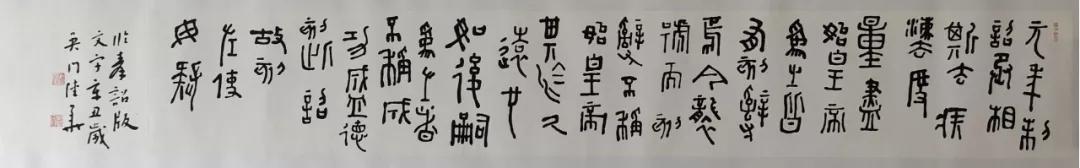 元年制
詔丞相
斯去疾
灋度
量盡
始皇帝
為之皆
有刻辭
焉今襲
號而刻
辭不稱
始皇帝
其於久
遠也
如後嗣
為之者
不稱成
功盛德
刻此詔
故刻
左使
毋疑
臨秦詔版
文字辛丑歲
吳門